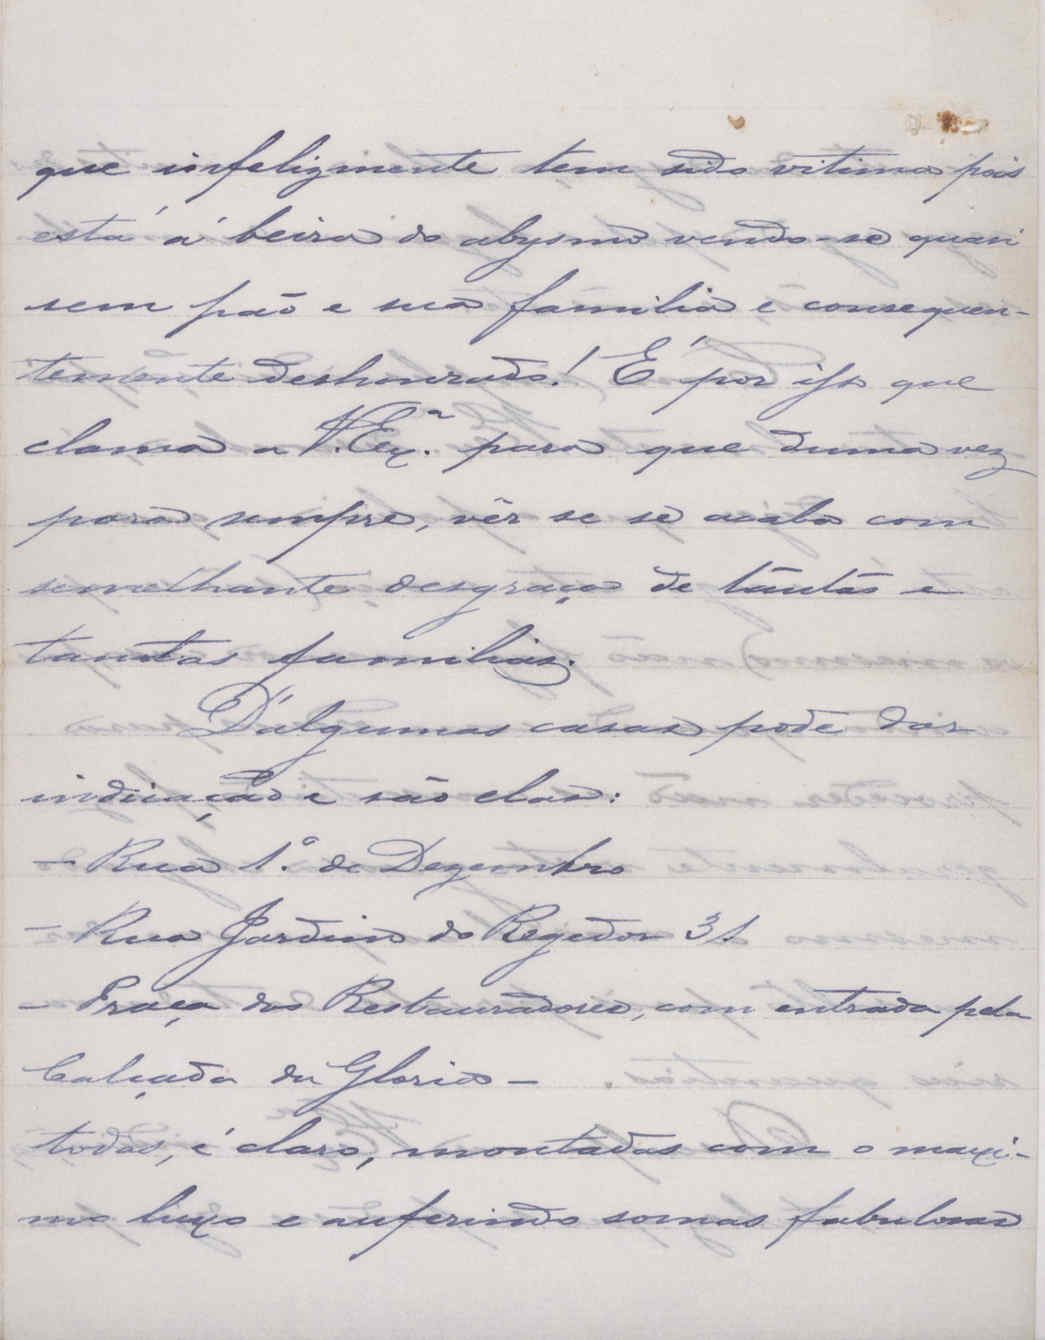 que infelizmente tem sido vitima pois
está á beira do abysmo vendo-se quasi
sem pão e sua familia e consequen-
temente deshonrado! É por isso que
clama a V. Exª. para que duma vez
para sempre, vêr se se acaba com
semelhante desgraça de tantas e
tantas familias.
D'algumas casas pode dar
indicação e são elas:
- Rua 1.º de Dezembro
- Rua Jardim do Regedor 31
- Praça dos Restauradores, com entrada pela
Calçada da Gloria -
todas, é claro, montadas com o maxi-
mo luxo e auferindo somas fabulosas